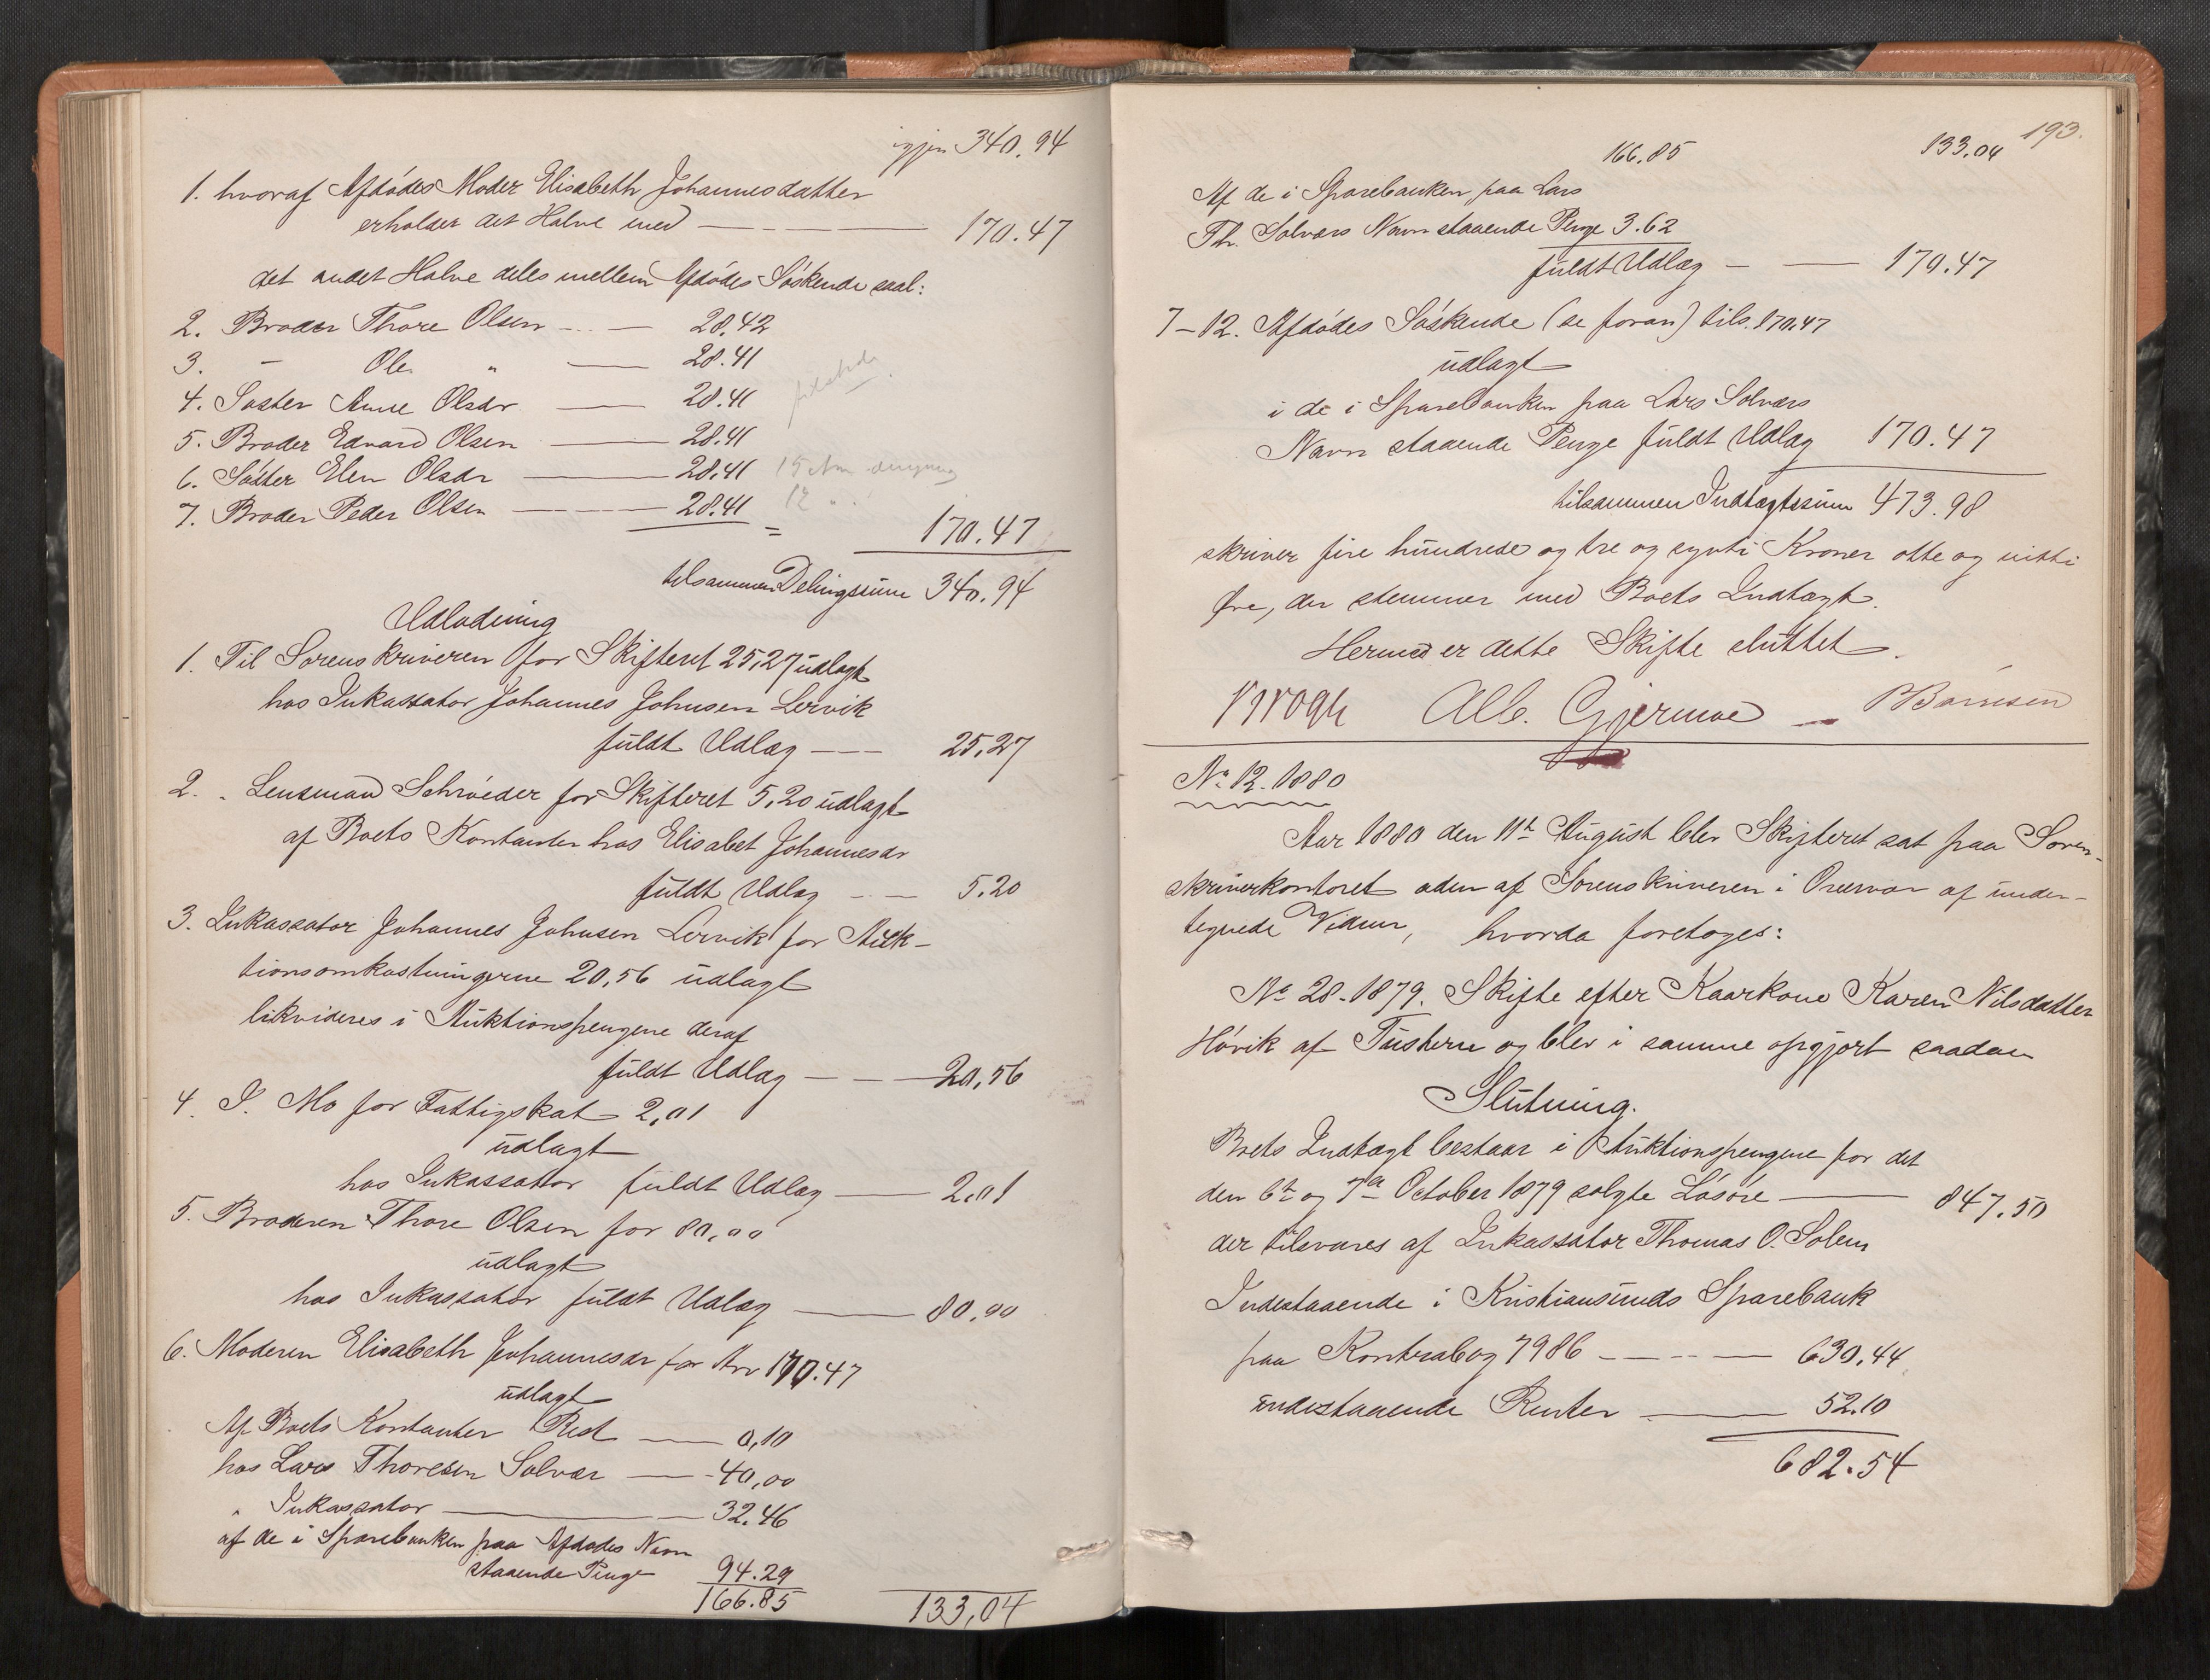 igjen 340.94
1. hvoraf Afdødes Moder Elisabeth Johannesdatter
erholder det Halve med — - — 170.47
det andet Halve deles mellem Afdødes Søskende saal:
2. Broder Thore Olsen - — 28.42
3. — Ole " — 28.41
4. Søster Anne Olsdr — 28.41
5. Broder Edvard Olsen — 28.41
6. Søster Elen Olsdr — 28.41 15 Aar
7. Broder Peder Olsen — 28.41 12 "
= 170.47
tilsammen Delingsum 340.94
Udlodning
1. Til Sorenskriveren for Skifteret 25,27 udlagt
hos Inkassator Johannes Johnsen Lervik
fuldt Udlæg — 25,27
2. " Lensmand Schrøder for Skifteret 5,20 udlagt
af Boets Kontanter hos Elisabet Johannesdr
fuldt Udlæg — 5.20
3. Inkassator Johannes Johnsen Lervik for Auk-
tionsomkostningerne 20,56 udlagt
likvideres i Auktionspengene deraf
fuldt Udlæg — — 20,56
4. I. Mo for Fattigskat 2,01
udlagt
hos Inkassator fuldt Udlæg — 2.01
5. Broderen Thore Olsen for 80,00
udlagt
hos Inkassator fuldt Udlæg — 80,00
6. Moderen Elisabeth Johannesdr for Arv 170.47
udlagt
Af Boets Kontanter Rest — 0,10
hos Lars Thoresen Solvær — 40,00
" Inkassator — 32.46
af de i Sparebanken paa Afdødes Navn
staaende Penge 94.29
166.85 133,04
193.
166.85 133.04
Af de i Sparebanken paa Lars
Th. Solværs Navn staaende Penge 3.62
fuldt Udlæg — — 170.47
7-12. Afdødes Søskende (se foran) tils. 170.47
udlagt
i de i Sparebanken paa Lars Solværs
Navn staaende Penge fuldt Udlæg 170.47
tilsammen Indtægtssum 473.98
skriver fire hundrede og tre og sytti Kroner otte og nitti
Øre, der stemmer med Boets Indtægt.
Hermed er dette Skifte sluttet.
Krogh Alb. Gjermoe — Bernsen
No 12. 1880
Aar 1880 den 11te August blev Skifteret sat paa Soren-
skriverkontoret uden af Sorenskriveren i Overvær af under-
tegnede Vidner, hvorda foretoges:
No 28-1879. Skifte efter Kaarkone Karen Nilsdatter
Høvik af Tustern og blev i samme opgjort saadan
Slutning.
Boets Indtægt bestaar i Auktionspengene for det
den 6te og 7de October 1879 solgte Løsøre — 847.50
der tilsvares af Inkassator Thomas O. Solem
Indestaaende i Kristiansunds Sparebank
paa Kontrabog 7986 — - - — 630,44
indestaaende Renter — 52.10
682.54